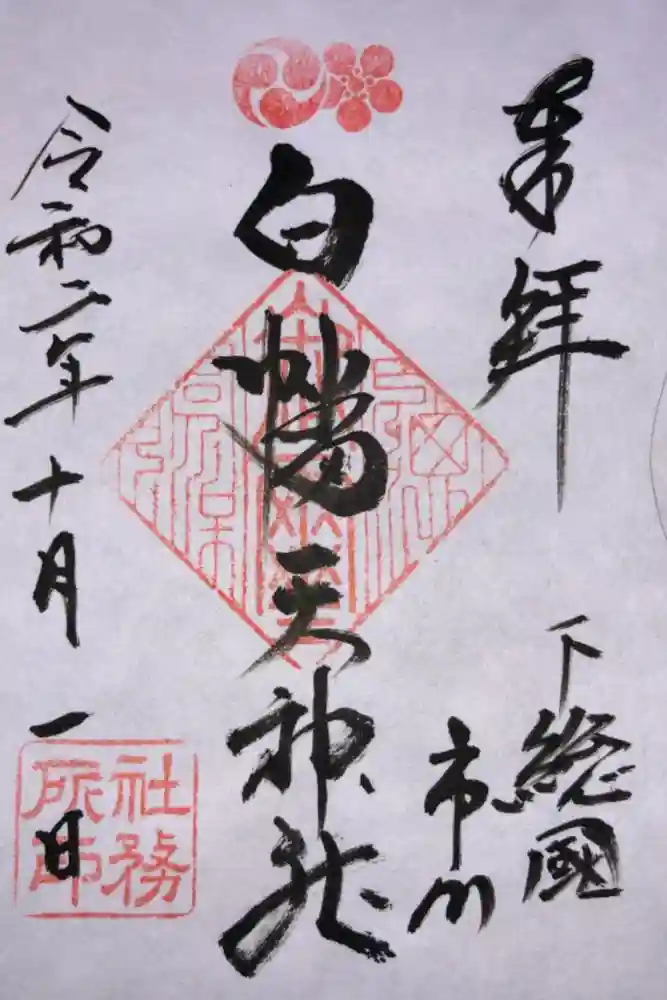 奉拝
下総國
市川
白幡天神社
令和二年十月一日
社務
所印